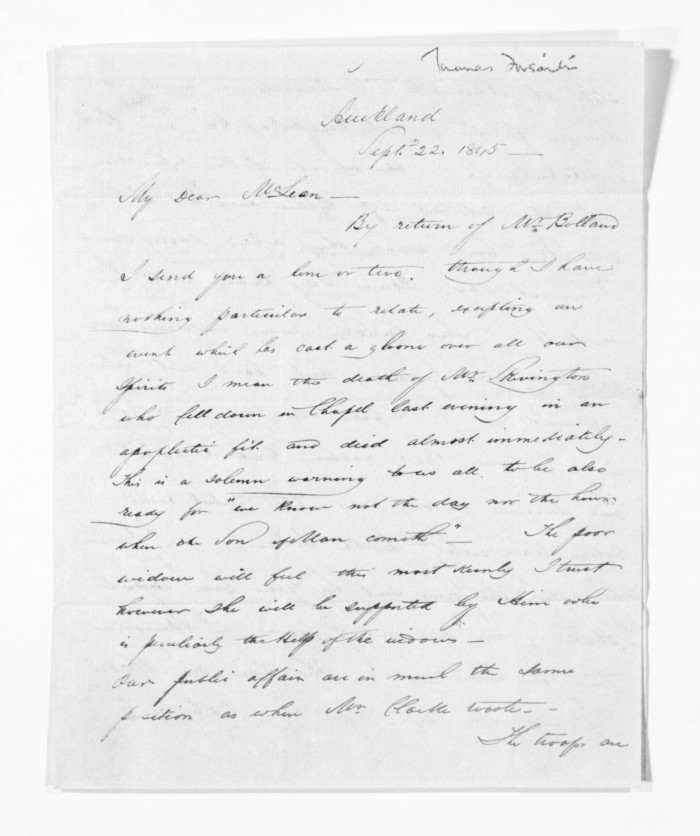 Thomas Forsaith
Auckland
Sept. 22. 1845 —
My Dear McLean —
By return of Mr. Bolland
I send you a line or two. though I have
nothing particular to relate, excepting an
event which has cast a gloom over all our
spirits I mean the death of Mr. Skivington
who fell down in Chapel last evening in an
apoplectic fit and died almost immediately —
This is a solemn warning to us all to be also
ready for "we know not the day nor the hour
when the Son of Man cometh" — The poor
widow will feel this most keenly I trust
however she will be supported by Him who
is peculiarly the Help of the widows —
Our public affairs are in much the same
position as when Mr. Clarke wrote. —
The troops are